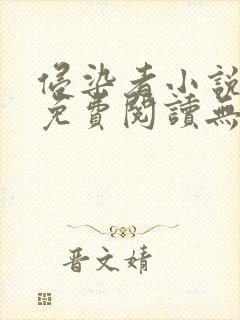 侵染者小說
免費閱讀無
晋文婧